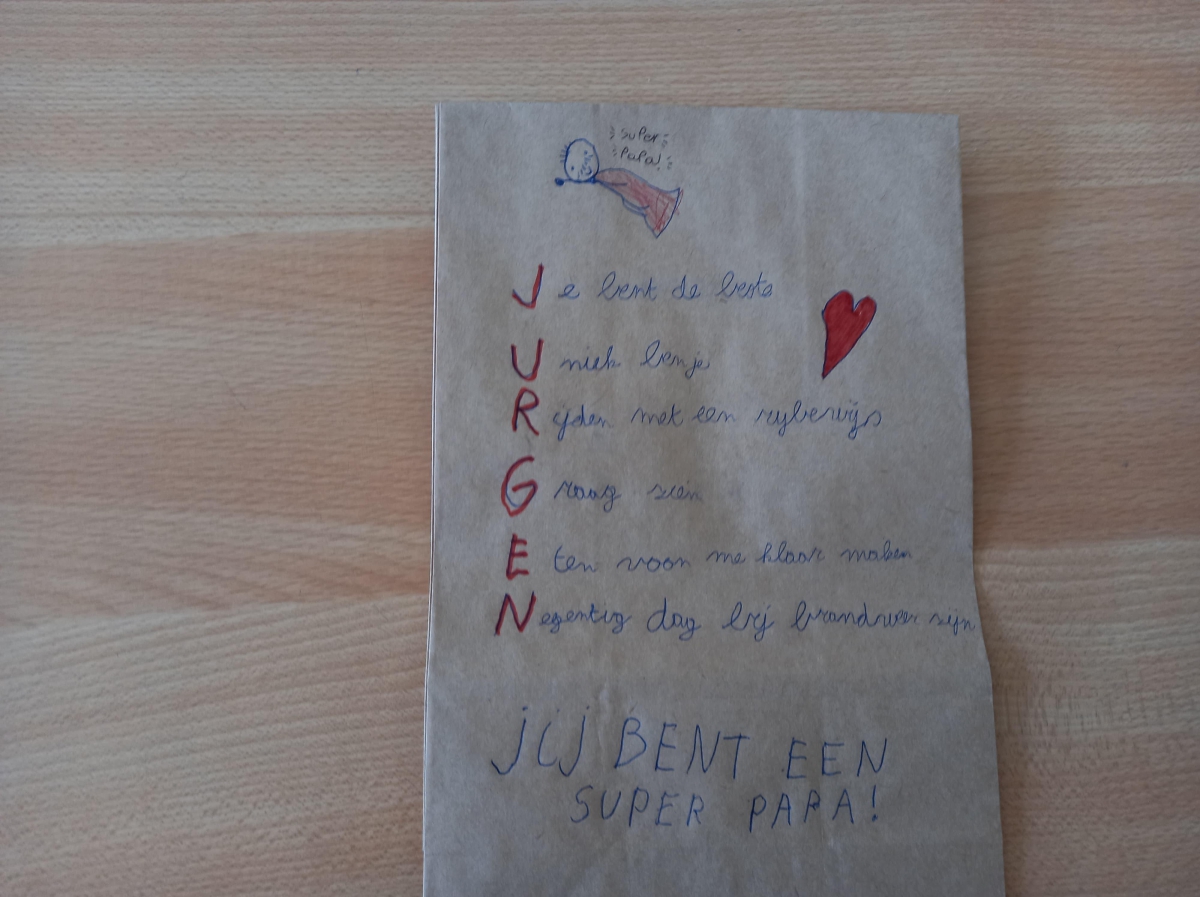 super
papa!
Je bent de beste
Uniek ben je
Rijden met een rijbewijs
Graag zien
Eten voor me klaar maken
Negentig dag bij brandweer zijn
JIJ BENT EEN
SUPER PAPA!